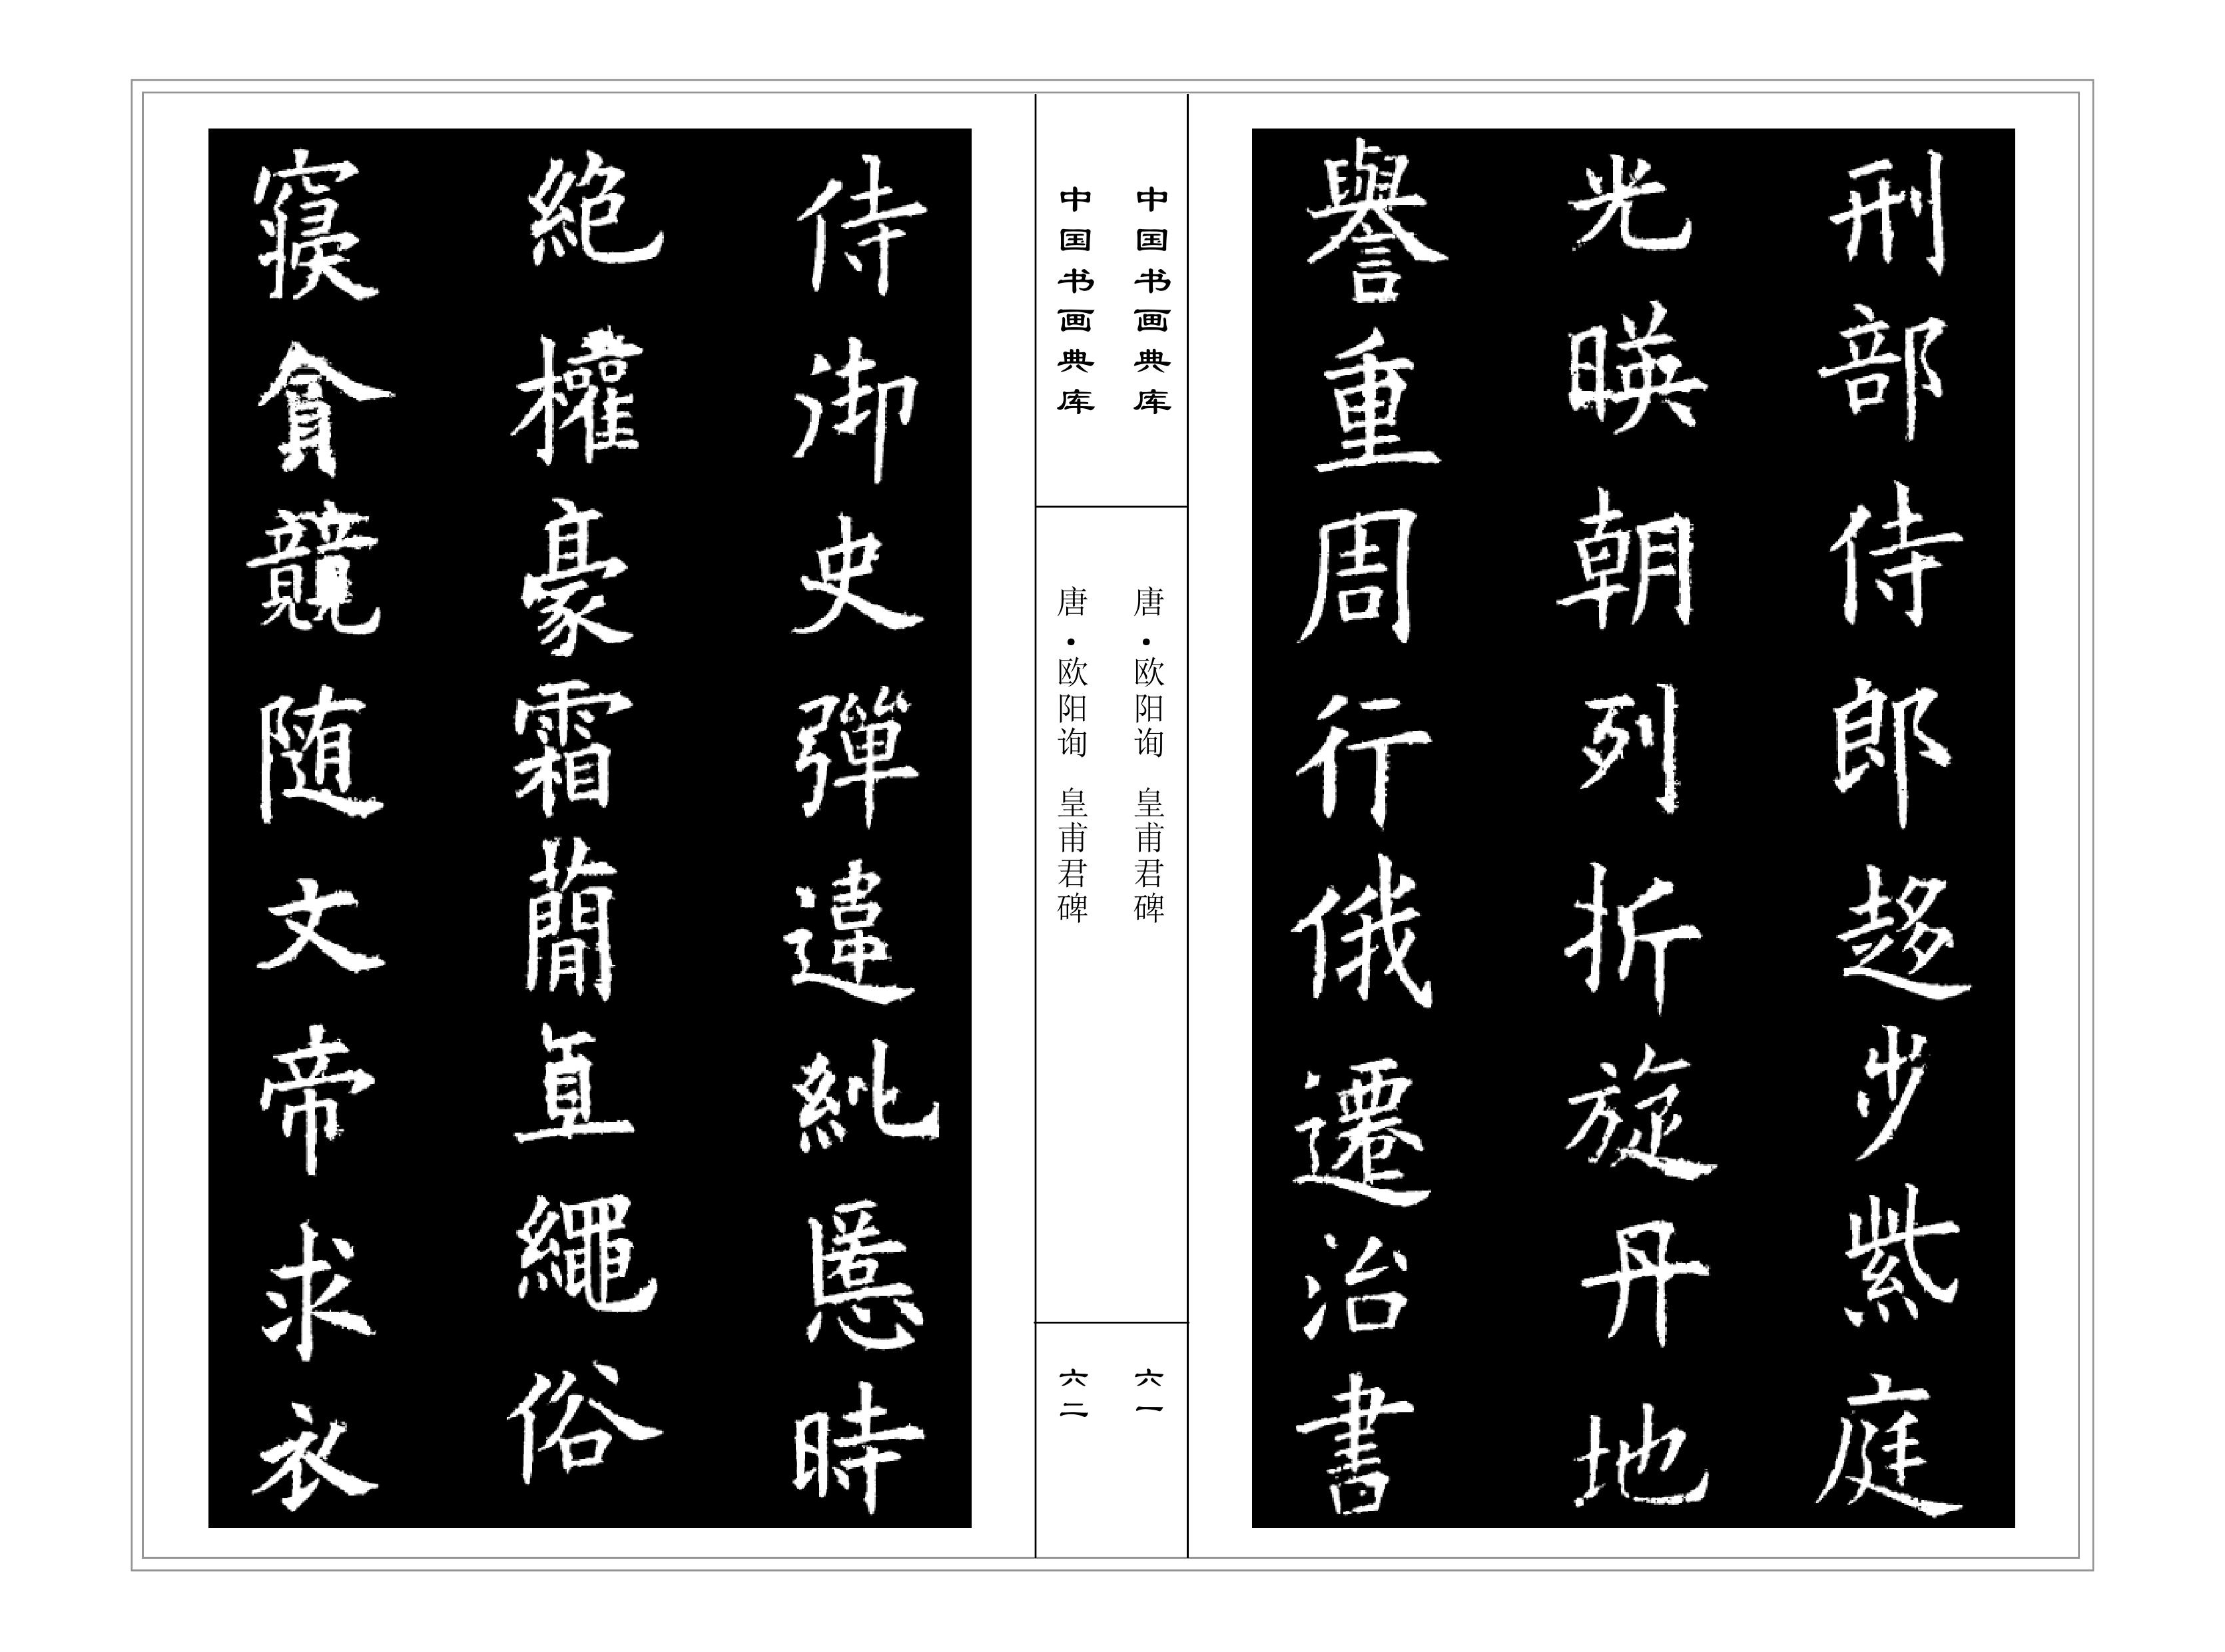 刑部侍郎趍步紫庭
光暎朝列折旋丹地
譽重周行俄遷治書
中国书画典库
唐·欧阳询 皇甫君碑
六一
中国书画典库
唐·欧阳询 皇甫君碑
六二
侍御史彈違糺慝時
絶權豪霜蕳直繩俗
寝貪競随文帝求衣